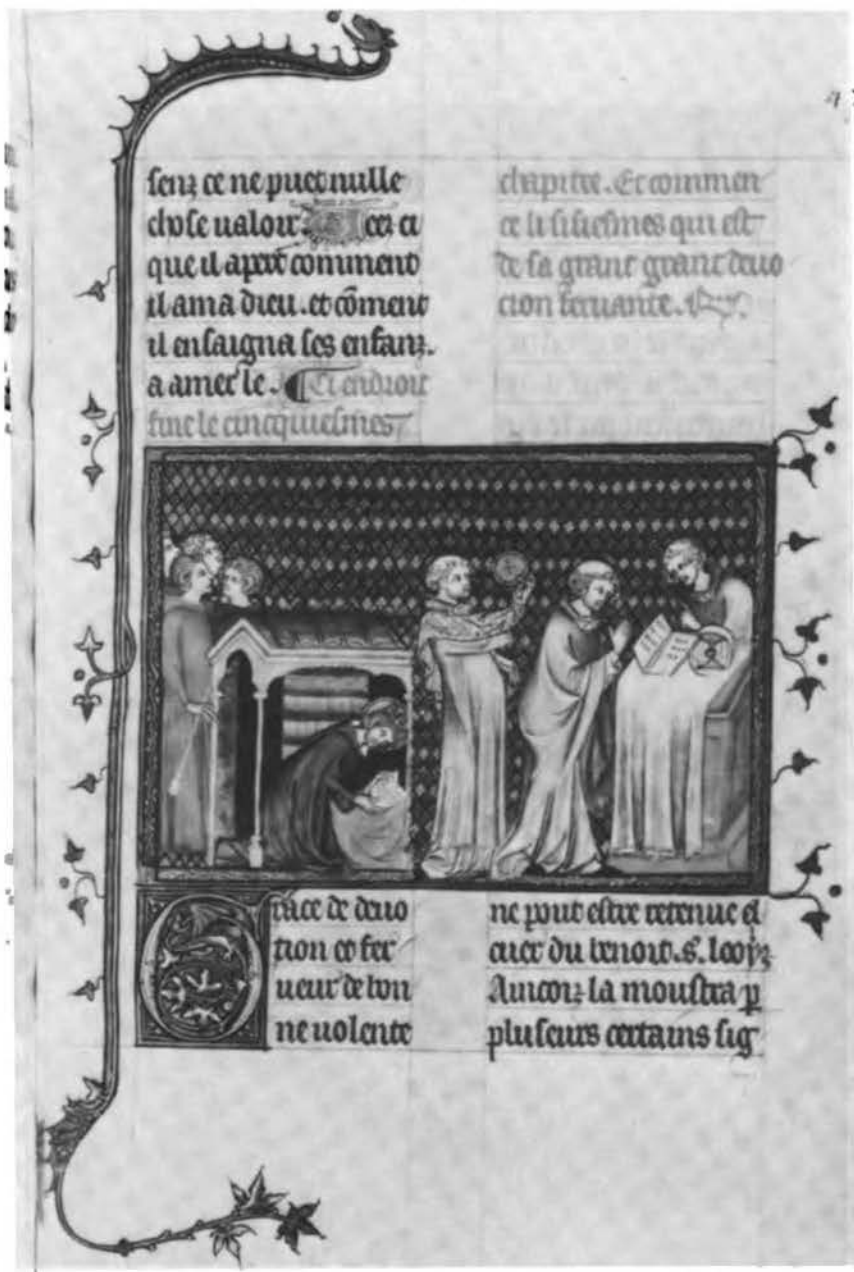 senz ce ne puet nulle
chose ualoir. Cer ci
que il apert comment
il ama dieu. et cōment
il ensaigna ses enfanz.
a amer le. ¶ Et endroit
fine le cincquiesmes
chapitre. Et commen
ce li sisiesmes qui est
de sa grant grant deuo
cion feruante.
Grace de deuo
tion et fer
ueur de bon
ne uolente
ne pout estre retenue el
cuer du benoit. s. looÿz
Aincoiz la moustra p
pluseurs certains sig